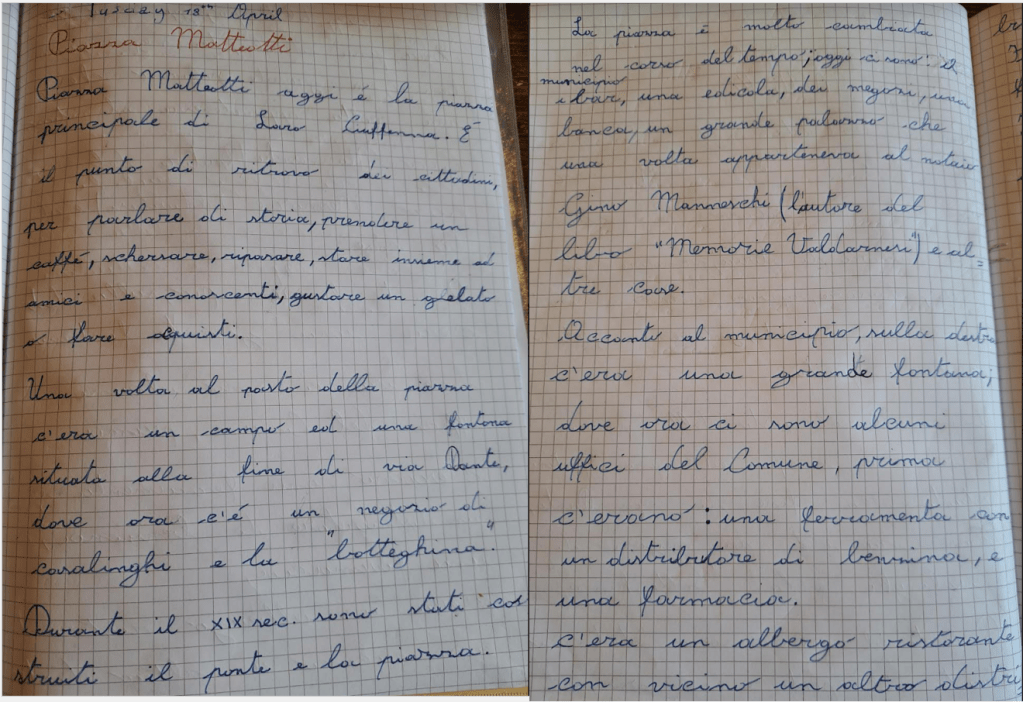 Tuscay 18th April
Piazza Matteotti
Piazza Matteotti oggi é la piazza
principale di Loro Ciuffenna. É
il punto di ritrovo dei cittadini,
per parlare di storia, prendere un
caffé, scherzare, riposare, stare insieme ad
amici e conoscenti, gustare un gielato
o fare acquisti.
Una volta al posto della piazza
c'era un campo ed una fontana
situata alla fine di via Dante,
dove ora c'é un negozio di
casalinghi e la "botteghina".
Durante il XIX sec. sono stati cos
struiti il ponte e la piazza.
La piazza é molto cambiata
nel corso del tempo; oggi ci sono: il
municipio
i bar, una edicola, dei negozi, una
banca, un grande palazzo che
una volta apparteneva al notaio
Gino Manneschi (l'autore del
libro "Memorie Valdarnesi") e al=
tre cose.
Accanto al municipio, sulla destra
c'era una grande fontana;
dove ora ci sono alcuni
uffici del Comune, prima
c'erano: una ferramenta con
un distributore di benzina, e
una farmacia.
c'era un albergo ristorante
con vicino un altro distri